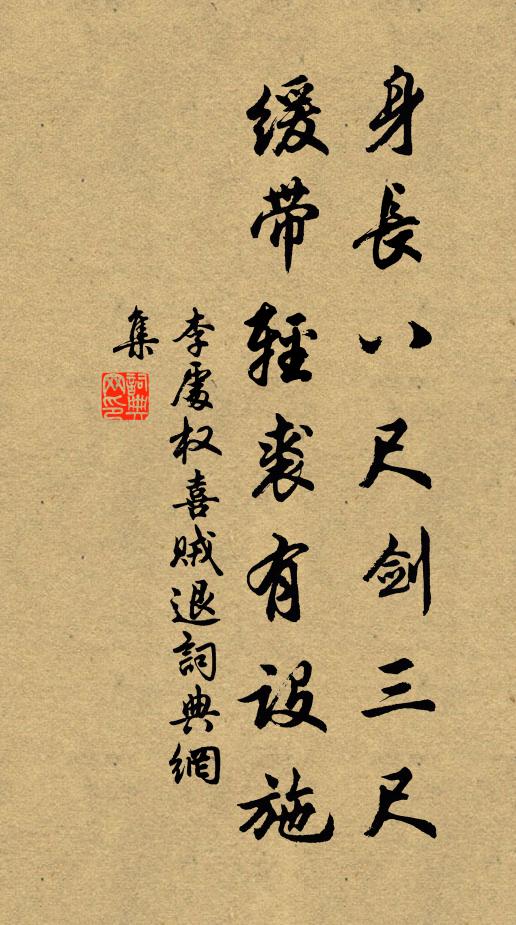 身長八尺剑三尺
缓带輕裘有設施
李處权喜贼退詞典網
集
詞典網印